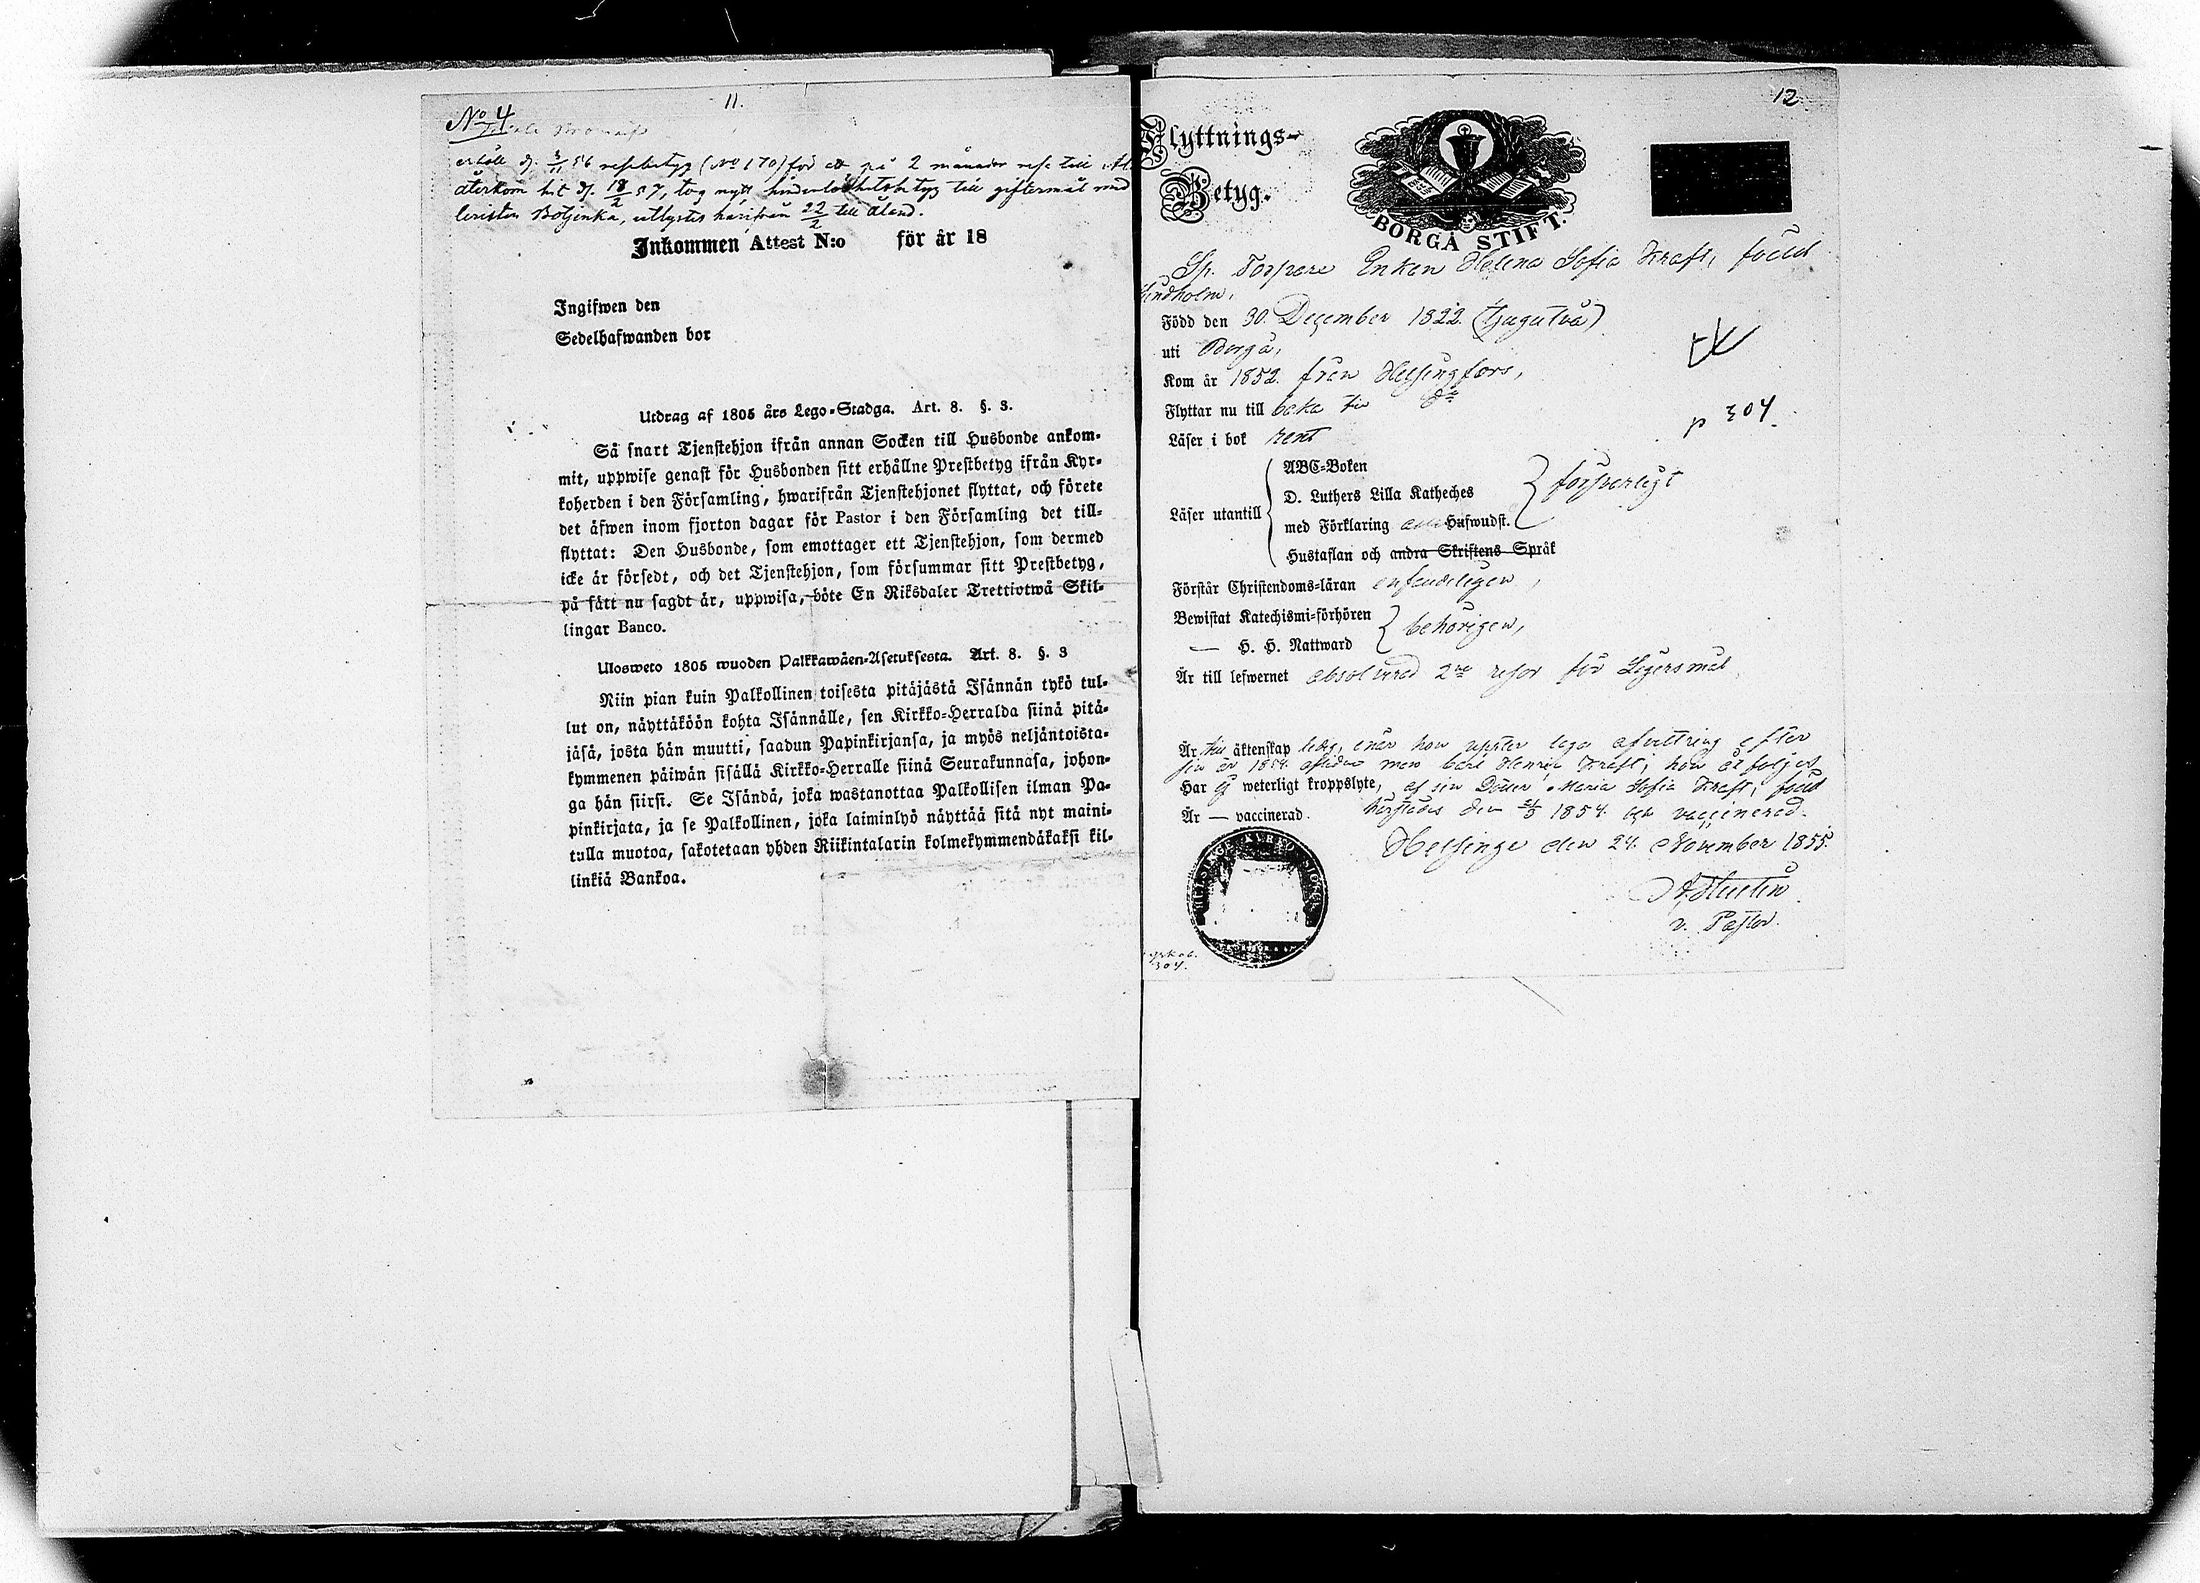 11.
No 4
erhöll d. 3/11 56 resebetyg (No 170) för en på 2 månader resa till
återkom hit d. 18/2 57, tog nytt hinderlöshetsbetyg till giftermål med
Botjenka, utlystes härifrån 22/2 till Åland.
Inkommen Attest N:o för år 18
Ingifwen den
Sedelhafwanden bor
Utdrag af 1805 års Lego-Stadga. Art. 8. §. 3.
Så snart Tjenstehjon ifrån annan Socken till Husbonde ankom-
mit, uppwise genast för Husbonden sitt erhållne Prestbetyg ifrån Kyr-
koherden i den Församling, hwarifrån Tjenstehjonet flyttat, och förete
det äfwen inom fjorton dagar för Pastor i den Församling det till-
flyttat: Den Husbonde, som emottager ett Tjenstehjon, som dermed
icke är försedt, och det Tjenstehjon, som försummar sitt Prestbetyg,
på sätt nu sagdt är, uppwisa, böte En Riksdaler Trettiotwå Skil-
lingar Banco.
Ulosweto 1805 wuoden Palkkawäen-Asetuksesta. Art. 8. §. 3
Niin pian kuin Palkollinen toisesta pitäjästä Isännän tykö tul-
lut on, näyttäköön kohta Isännälle, sen Kirkko-Herralda siinä pitä-
jäsä, josta hän muutti, saadun Papinkirjansa, ja myös neljäntoista-
kymmenen päiwän sisällä Kirkko-Herralle siinä Seurakunnasa, johon-
ga hän siirsi. Se Isändä, joka wastanottaa Palkollisen ilman Pa-
pinkirjata, ja se Palkollinen, joka laiminlyö näyttää sitä nyt maini-
tulla muotoa, sakotetaan yhden Riikintalarin kolmekymmendäkaksi kil-
linkiä Bankoa.
12
Flyttnings-
Betyg.
BORGÅ STIFT.
Sp. Torpare Enkan Helena Sofia Kraft, född
Lindholm,
Född den 30. December 1822. (tjugutvå)
uti Borgå,
Kom år 1852. från Helsingfors,
Flyttar nu till baka till do
p 304.
Läser i bok rent
Läser utantill
ABC-Boken
D. Luthers Lilla Katheches
med Förklaring Hufwudst.
Hustaflan och andra Skriftens Språk
försvarligt
Förstår Christendoms-läran enfaldeligen,
Bewistat Katechismi-förhören
— H. H. Nattward
behörigen,
Är till lefwernet absolverad 2ne resor för Lägersmål,
Är till äktenskap ledig, enär hon upster laga afvittring efter
sin år 1854. aflidne man Carl Henric Kraft; hon åtföljes
Har ej weterligt kroppslyte, af sin Dotter Maria Sofia Kraft, född
Är — vaccinerad. härstädes den 1854. och vaccinerad.
Helsinge den 24. November 1855.
v. Pastor.
304.